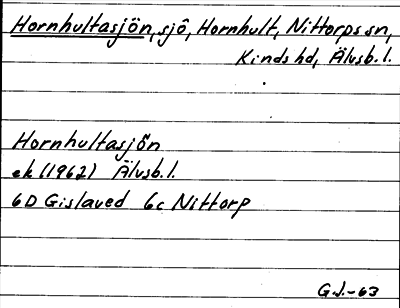 Hornhultasjön, sjö, Hornhult, Nittorps sn,
Kinds hd, Älvsb. l.
Hornhultasjön
ek (1962) Älvsb. l.
6D Gislaved 6c Nittorp
G.J.-63